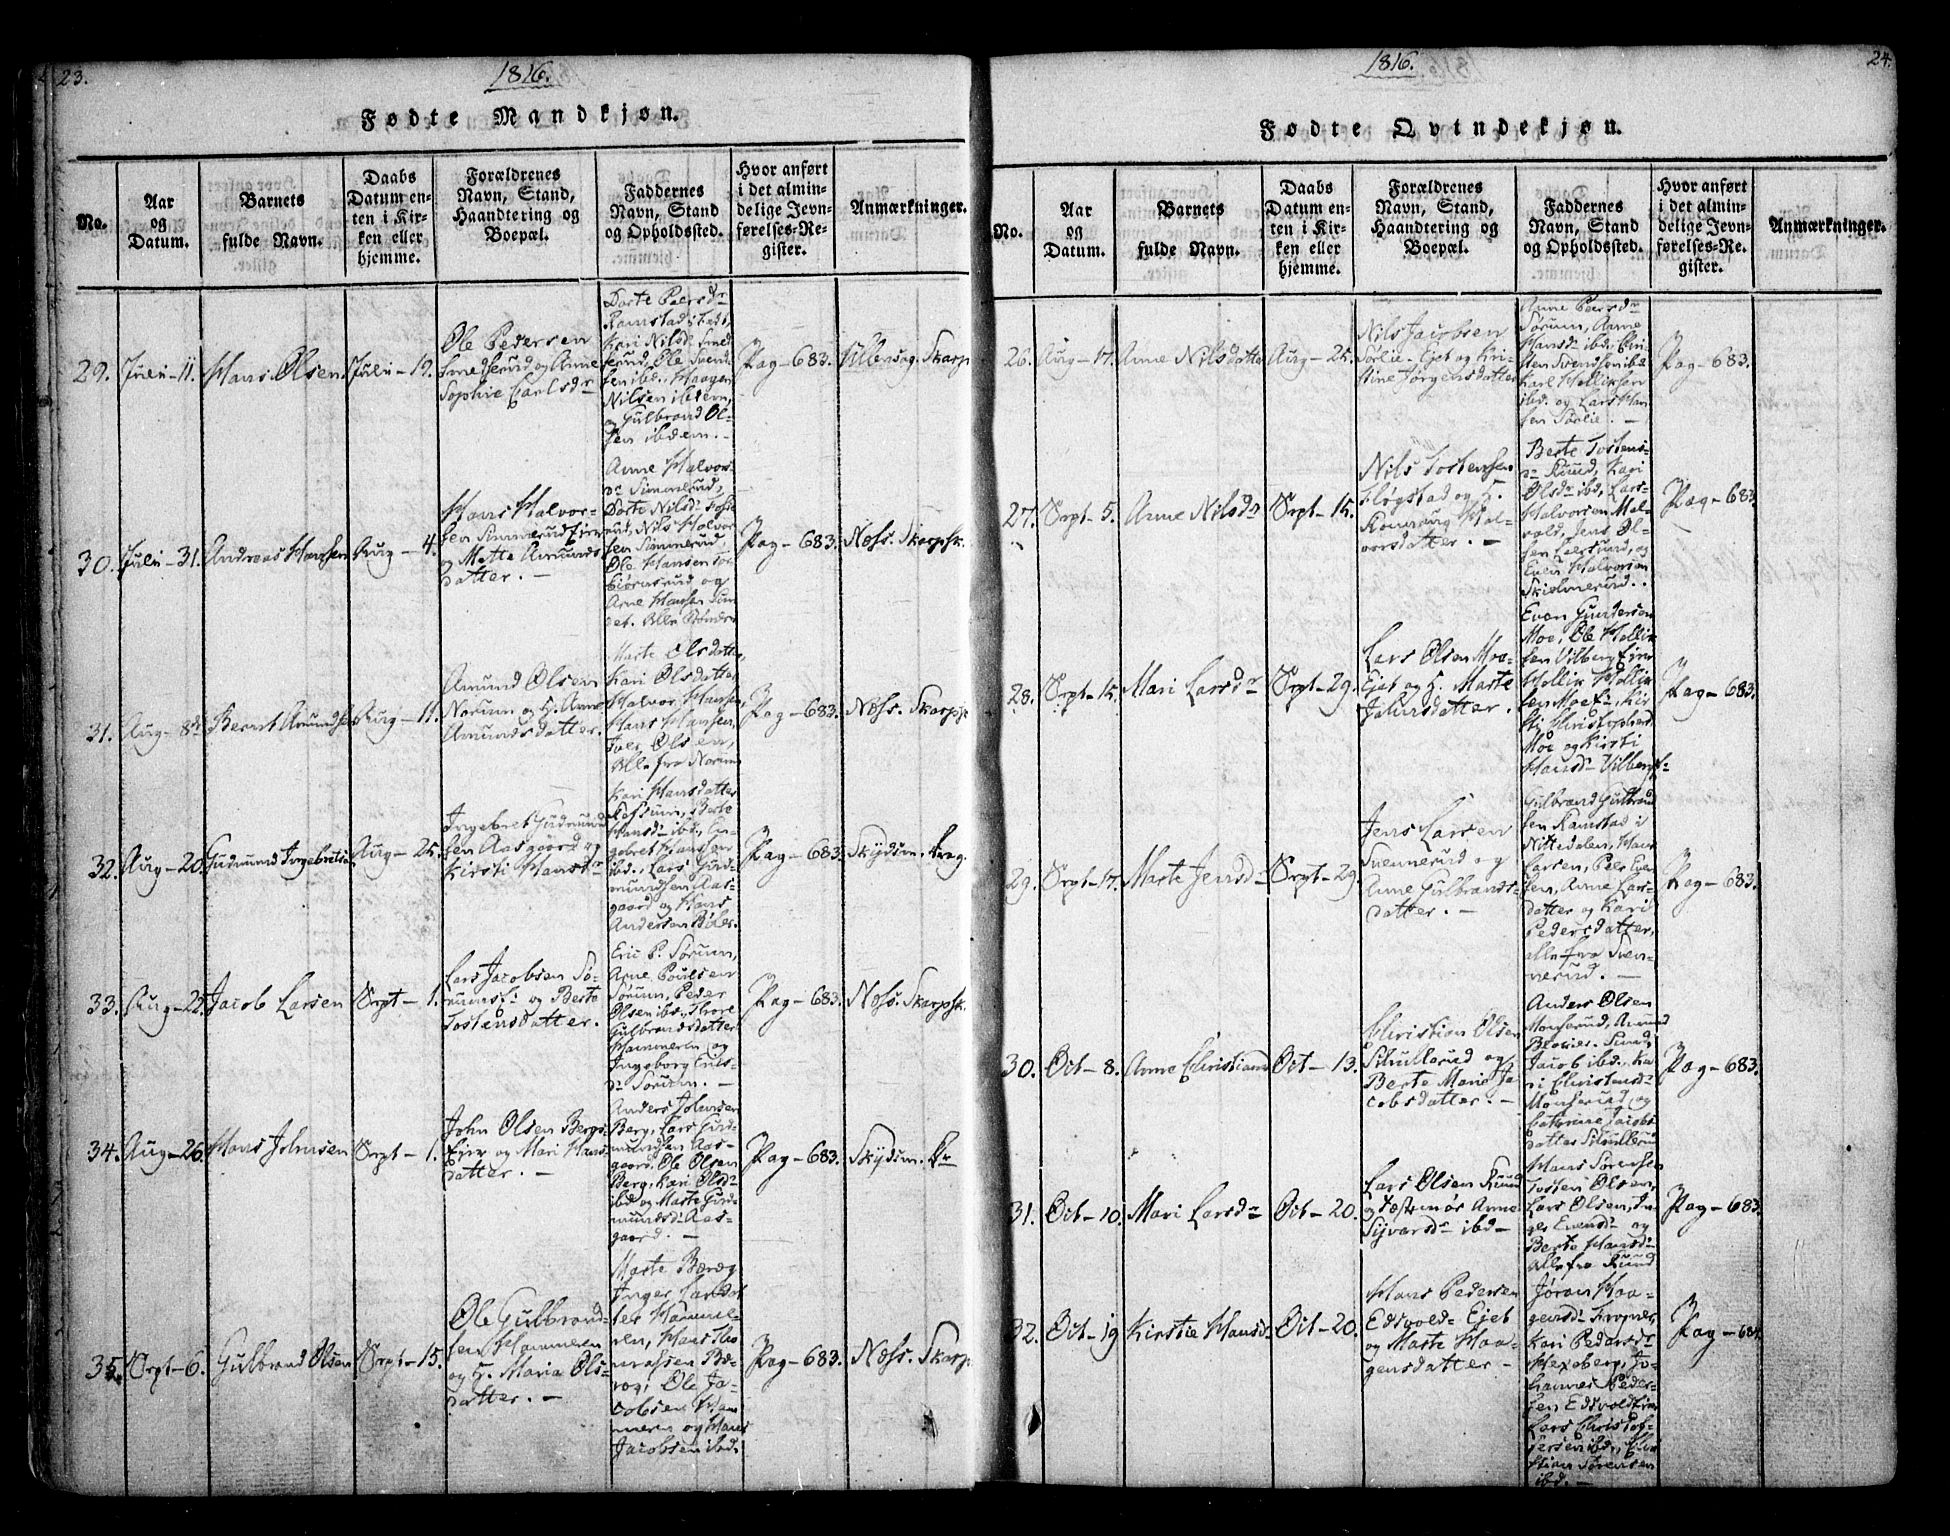 23.
1816.
Fødte Mandkjøn.
No.
Aar
og
Datum.
Barnets
fulde Navn.
Daabs
Datum en-
ten i Kir-
ken eller
hjemme.
Forældrenes
Navn, Stand,
Haandtering og
Boepæl.
Faddernes
Navn, Stand
og Opholdssted.
Hvor anført
i det almin-
delige Jevn-
førelses-Re-
gister.
Anmærkninger.
29.
Julii-11.
Hans Olsen.
Julii-19.
Ole Pedersen
Smedserud og Anne
Sophie Carlsdr
Dorte Peersdr
Ramstad
Kari Nilsdr Smed
serud, Ole Svend
sen ibd., Haagen
Nilsen ibidem,
og Gulbrand Ol-
sen ibidem. -
Pag-683.
Ullensag. Skarp
30.
Julii-31.
Andreas Hansen
Aug-4.
Hans Halvor-
sen Simmerud Eier
og Mette Amunds
datter. -
Anne Halvors
dr Simmerud,
Dorte Nilsdr
Nils Halvor
sen Simmerud,
Ole Hansen
og
Arne Hansen
Alle Bønder
Pag-683.
Næss. Skarpsk.
31.
Aug-8de
Bernt Amunds
Aug-11.
Amund Olsen
Norum og H. Anne
Amundsdatter.
Marte Olsdatter,
Kari Olsdatter,
Halvor Hansen,
Hans Hansen,
Iver Olsen,
Alle fra Norum
Pag-683.
Næss. Skarpsk
32.
Aug-20.
Gudmund Ingebretsen
Aug-25.
Ingebret Gudmund
sen Aasgaard og
Kirsti Hansdr
Kari Hansdatter
Refsum, Berte
Hansdr ibd., In-
gebret Hansen
ibd., Lars Gud-
mundsen Aas-
gaard og Hans
Andersen Bøler.
Pag-683.
Skydsm. Drag.
33.
Aug-22.
Jacob Larsen
Sept-1.
Lars Jacobsen Sø-
rum og Berte
Tostensdatter.
Eric P. Sørum,
Arne Poulsen
Sørum, Peder
Olsen ibd., Thore
Gulbrandsdatter
Hammeren og
Ingeborg
dr Sørum. -
Pag-683.
Næss. Skarpsk.
34.
Aug-26.
Hans Johnsen
Sept-1.
John Olsen Berg
Eier og Mari Hans
datter. -
Anders Johnsen
Berg, Lars Gud-
mundsen Aas-
gaard, Ole Olsen
Berg, Kari Olsdr
ibd og Marte Gud-
mundsdr Aas-
gaard. -
Pag-683.
Skydsm. Dr
35.
Sept-6.
Gulbrand Olsen
Sept-15.
Ole Gulbrand-
sen Hammeren
og H. Maria Ols-
datter. -
Marte Bærøg
Inger Larsdat
ter Hamme-
ren, Hans Tho
mesen Bæ-
røg, Ole Ja-
cobsen Ham
meren og Hans
Jacobsen ibd.
Pag-683.
Næss. Skarp
24.
1816.
Fødte Qvindekjøn.
No.
Aar
og
Datum.
Barnets
fulde Navn.
Daabs
Datum en-
ten i Kir-
ken eller
hjemme.
Forældrenes
Navn, Stand,
Haandtering og
Boepæl.
Faddernes
Navn, Stand
og Opholdssted.
Hvor anført
i det almin-
delige Jevn-
førelses-Re-
gister.
Anmærkninger.
26.
Aug-17.
Anne Nilsdatter
Aug-25.
Nils Jacobsen
Sørlie- Ejet og Kri-
stine Jørgensdatter
Anne Peersdr
Sørum, Anne
Hansdr ibd. Chri
sten Svendsen ibd
Karl Helliksen
ibd. og Lars Han
sen Sørlie. -
Pag-683.
27.
Sept-5.
Anne Nilsdr
Sept-15.
Nils Tostensen
Fløgstad og H.
Ronnaug Hal-
vorsdatter. -
Berte Tostens-
dr Ruud, Kari
Olsdr ibd, Lars
Halvorsen Mal-
vold, Jens Ol-
sen og
Even Halvorsen
Skiønnerud.
Pag-683
28.
Sept-15.
Mari Larsdr
Sept-29.
Lars Olsen Moe-
Ejet og H. Marte
Johnsdatter.
Even Gundersen
Moe, Ole Hellik
sen Vilberg Eier
Hellik Hellik
sen Kir-
sti Christophersdr
Moe og Kirsti
Hansdr Vilberg
Pag-683
29.
Sept-17.
Marte Jensdr
Sept-29.
Jens Larsen
Svennerud og
Anne Gulbrands-
datter. -
Gulbrand Gulbrand
sen Ramstad i
Nittedalen, Hans
Larsen, Peer Ever
sen, Anne Lars-
datter og Kari
Pedersdatter,
alle fra Sven-
nerud. -
Pag-683.
30.
Oct-8.
Anne Christiansd
Oct-13.
Christian Olsen
Schullerud og
Berte Marie Ja
cobsdatter. -
Anders Olsen
Monserud, Amund
Jacob ibd., Ka-
ri Christensdr
Monserud og
Cathrine Jacobs
datter Schullerud
Pag-683.
31.
Oct-10.
Mari Larsdr
Oct-20.
Lars Olsen Ruud
og Fæstemøe Anne
Sivarsdr ibd-
Hans Sørensen
Tosten Olsen,
Lars Olsen, In-
ger Evensdr og
Berte Hansdr
Alle fra Ruud
Pag-683.
32.
Oct-19
Kirstie Hansdr
Oct-20.
Hans Pedersen
Edsvold- Ejet
og Marte Haa-
gensdatter -
Jøran Haa-
gensdr
Kari Pedersdr
Hexeberg, Jo-
hannes Peder-
sen Edsvold Eier
Lars Christof-
fersen ibd., Chri
stian Sørensen
ibd. -
Pag-684.